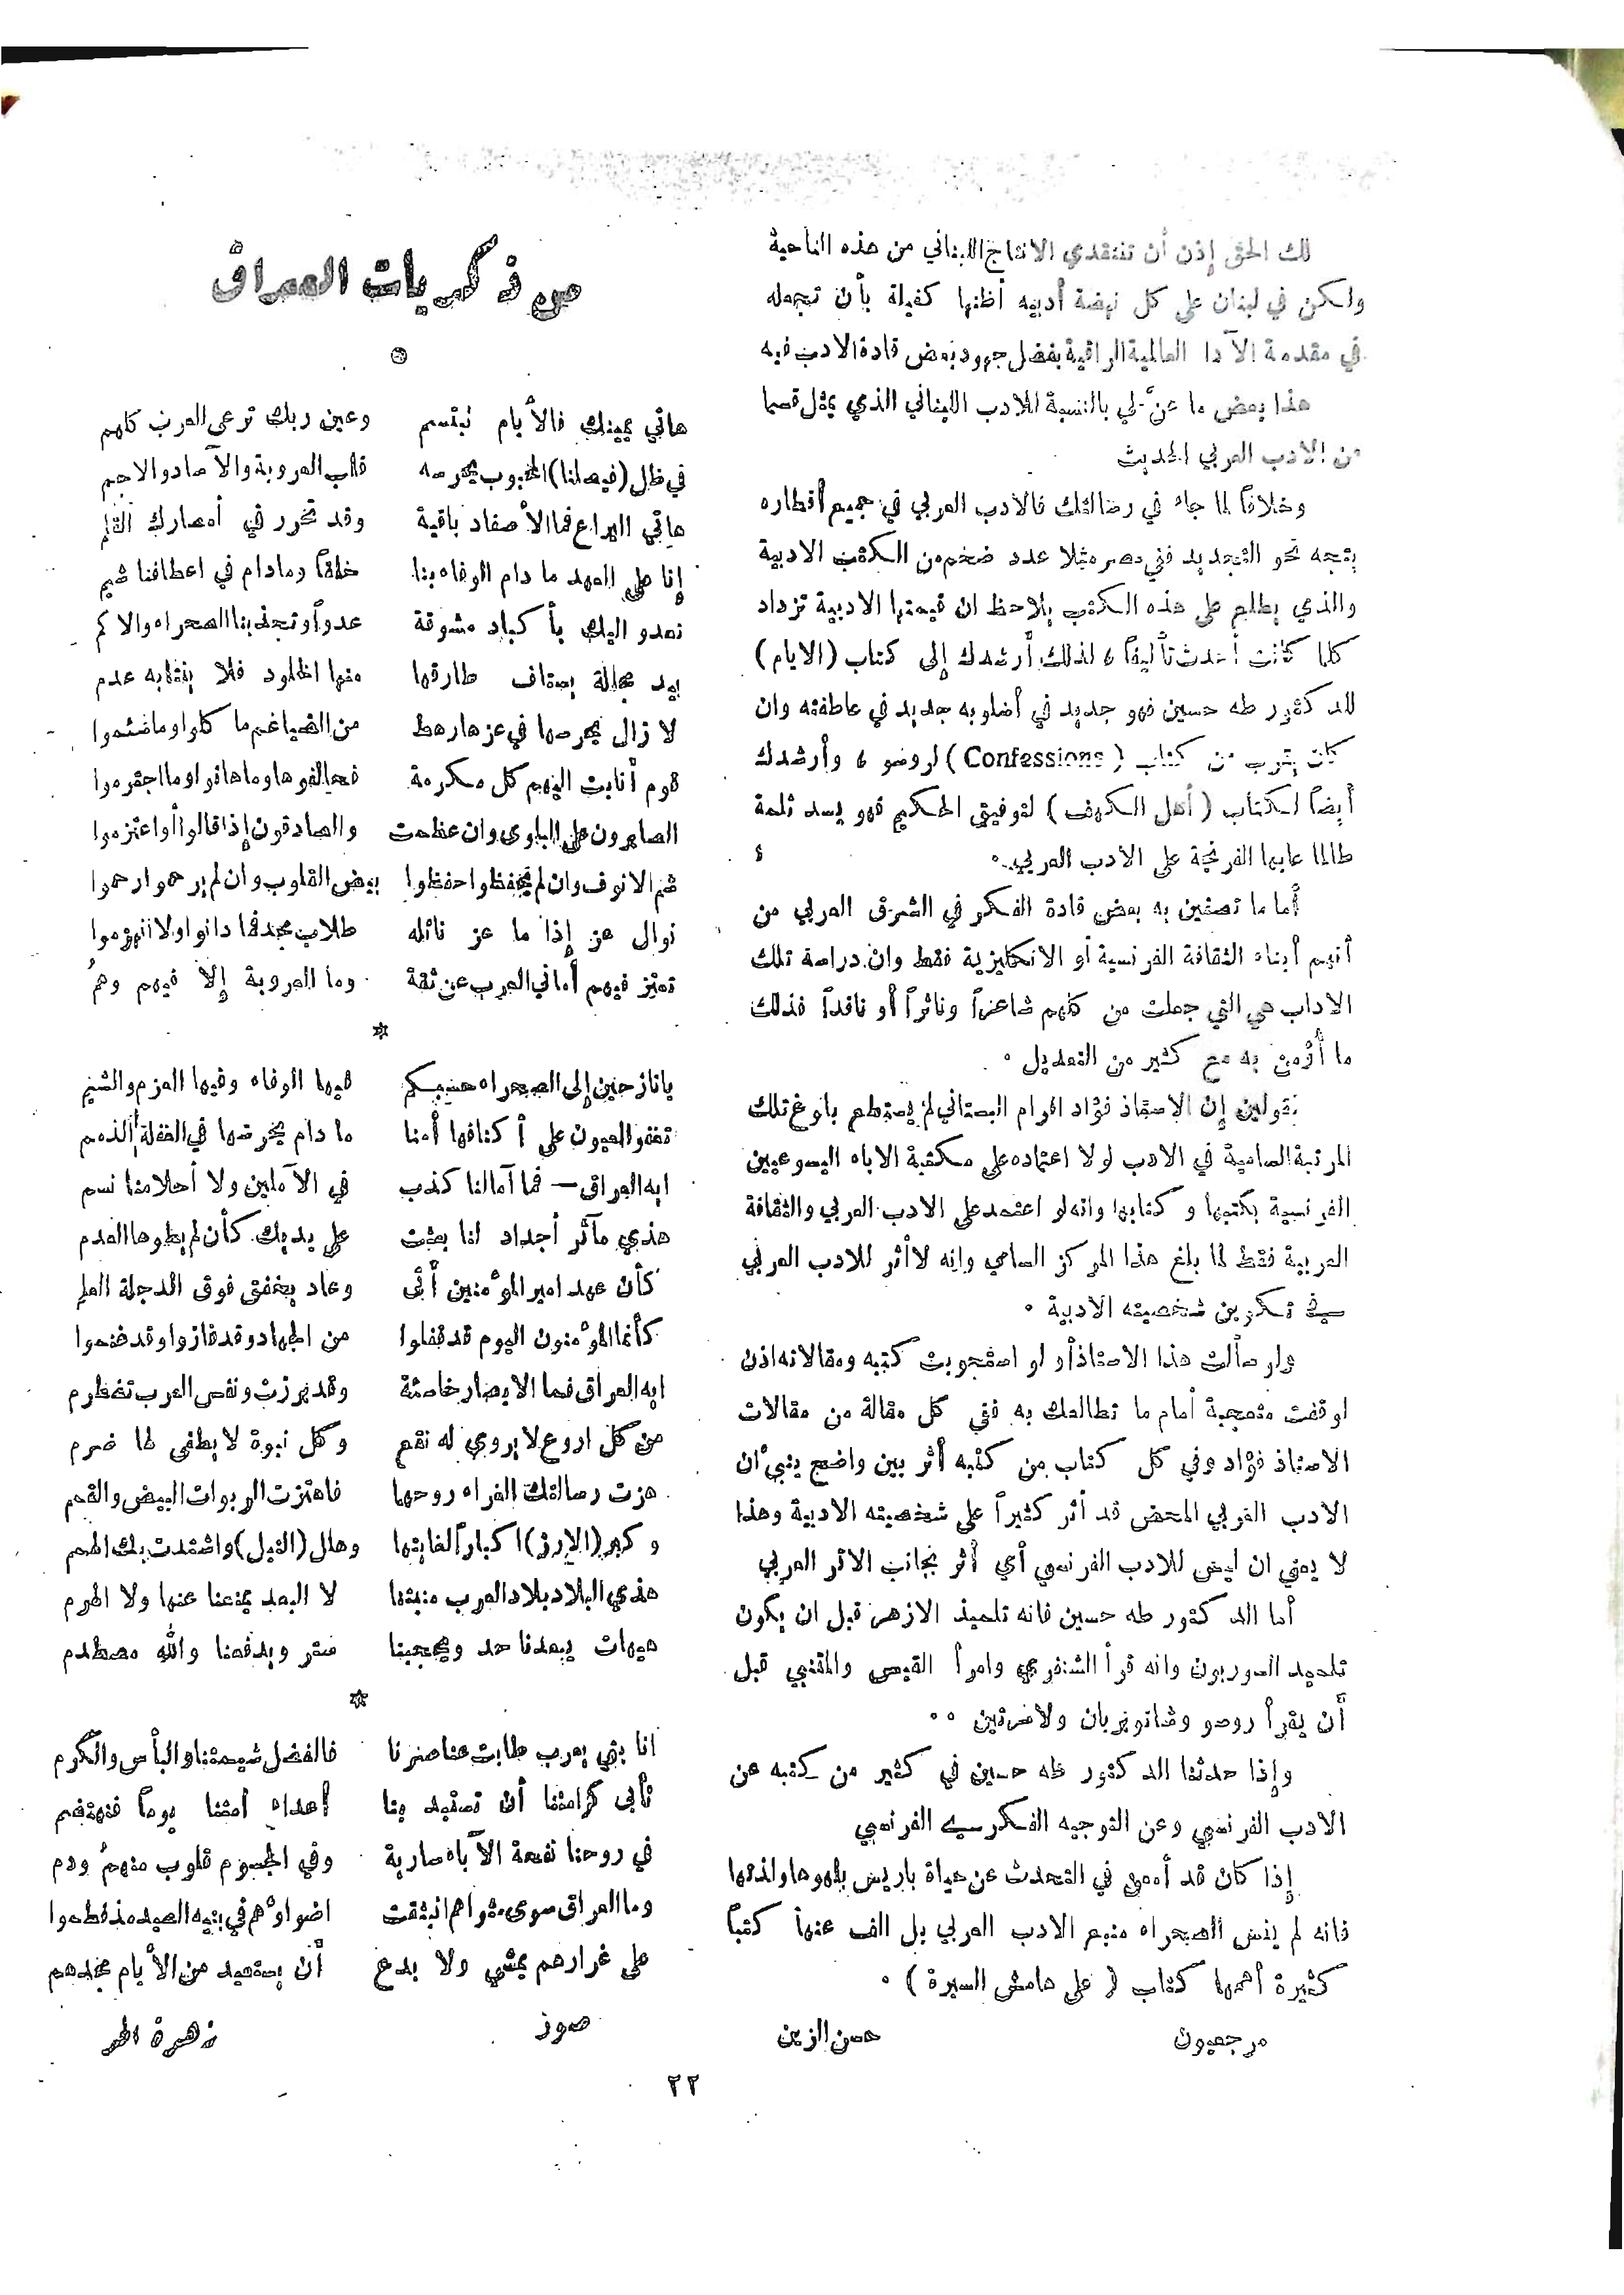 لك الحق إذن أن تنتقدي الانتاج اللبناني من هذه الناحية
ولكن في لبنان على كل نهضة أدبيه أظنها كفيلة بأن تجعله
في مقدمة الآدا العالمية الراقية بفضل جهود بعض قادة الادب فيه
هذا بعض ما عنّ لي بالنسبة للادب اللبناني الذي يمثل قسما
من الادب العربي الحديث
وخلافاً لما جاء في رسالتك فالادب العربي في جميع أقطاره
يتجه نحو التجديد ففي مصر مثلا عدد ضخم من الكتب الادبية
والذي يطلع على هذه الكتب يلاحظ ان قيمتها الادبية تزداد
كلما كانت أحدث تأليفاً ، لذلك أرشدك إلى كتاب (الايام)
للدكتور طه حسين فهو جديد في أسلوبه جديد في عاطفته وان
كان يقرب من كتاب ( Confessions ) لروسو ، وأرشدك
أيضاً لكتاب ( أهل الكهف ) لتوفيق الحكيم فهو يسد ثلمة
طالما عابها الفرنجة على الادب العربي .
أما ما تصفين به بعض قادة الفكر في الشرق العربي من
أنهم أبناء الثقافة الفرنسية أو الانكليزية فقط وان دراسة تلك
الاداب هي التي جعلت من كلهم شاعراً وناثراً أو ناقداً فذلك
ما أؤمن به مع كثير من التعديل .
تقولين إن الاستاذ فؤاد افرام البستاني لم يستطع بلوغ تلك
المرتبة السامية في الادب لولا اعتماده على مكتبة الاباء اليسوعيين
الفرنسية بكتبها و كتابها وانه لو اعتمد على الادب العربي والثقافة
العربية فقط لما بلغ هذا المركز السامي وانه لا أثر للادب العربي
في تكوين شخصيته الادبية .
ولو سألت هذا الاستاذ أو لو استجوبت كتبه ومقالاته اذن
لوقفت متعجبة أمام ما تطالعك به ففي كل مقالة من مقالات
الاستاذ فؤاد وفي كل كتاب من كتبه أثر بين واضح ينبي أن
الادب العربي المحض قد أثر كثيراً على شخصيته الادبية وهذا
لا يعني ان ليس للادب الفرنسي أي أثر بجانب الاثر العربي
أما الدكتور طه حسين فانه تلميذ الازهر قبل ان يكون
تلميد السوربون وانه قرأ الشنفرى وامرأ القيس والمتنبي قبل
أن يقرأ روسو وشاتوبريان ولامرتين . .
وإذا حدثنا الدكتور طه حسين في كثير من كتبه عن
الادب الفرنسي وعن التوجيه الفكري الفرنسي
إذا كان قد أسهى في التحدث عن حياة باريس بلهوها ولذتها
فانه لم ينس الصحراء منبع الادب العربي بل الف عنها كتباً
كثيرة أهمها كتاب ( على هامش السيرة ) .
مرجعيون حسن الزين
من ذكريات العراق
هاتي يمينك فالأيام تبتسم وعين ربك ترعى العرب كلهم
في ظل (فيصلنا) المحبوب يحرسه قلب العروبة والآساد والاجم
هاتي اليراع فما الأصفاد باقية وقد تحرر في أمصارك القلم
إنا على العهد ما دام الوفاء بنا خلقاً ومادام في اعطافنا شمم
نعدو اليك بأكباد مشوقة عدواً وتجف بنا الصحراء والاكم
بيد مجللة يستاف طارقها منها الخلود فلا ينتابه عدم
لا زال يحرسها في عزها رهط من الضياغم ما كلوا وما سئموا
قوم أنابت اليهم كل مكرمة فحالفوها وما هانوا وما اجترموا
الصابرون على البلوى وان عظمت والصادقون إذا قالوا أو اعتزموا
شم الانوف وان لم يحفظوا حفظوا بيض القلوب وان لم يرحموا رحموا
نوال عز إذا ما عز نائله طلاب مجد فما دانوا ولا انهزموا
تعتز فيهم أماني العرب عن ثقة وما العروبة إلا فيهم وهمُ
يا نازحين إلى الصحراء حسبكم فيها الوفاء وفيها العزم والشيم
تغفو العيون على أكنافها أمنا ما دام يحرسها في الغفلة الذمم
ايه العراق — فما آمالنا كذب في الآملين ولا أحلامنا نسم
هذي مآثر أجداد لنا بعثت على يديك كأن لم يطوها العدم
كأن عهد امير المؤمنين أتى وعاد يخفق فوق الدجلة العلم
كأنما المؤمنون اليوم قد قفلوا من الجهاد وقد فازوا وقد غنموا
ايه العراق فما الابصار خاسئة وقد برزت ونفس العرب تضطرم
من كل اروع لا يروى له نقع وكل نبوة لا يطفى لها ضرم
هزت رسالتك الغراء روحها فاهتزت الربوات البيض والقمم
وكبر (الارز) اكباراً لغايتها وهلل (النيل) واشتدت بك الهمم
هذي البلاد بلاد العرب منبتنا لا البعد يمنعنا عنها ولا الهرم
هيهات يبعدنا حد ويحجبنا ستر ويدفعنا والله مصطدم
انا بني يعرب طابت عناصرنا فالفضل شيمتنا والبأس والكرم
تأبى كرامتنا أن تستبد بنا أعداء أمتنا يوماً فتهتضم
في روحنا نفحة الآباء سارية وفي الجسوم قلوب منهمُ ودم
وما العراق سوى مثواهم انبثقت اضواؤهم في بنيه الصيد مذ فطموا
على غرارهم يمشي ولا بدع أن يستعيد من الأيام مجدهم
صور زهرة الحر
٢٢